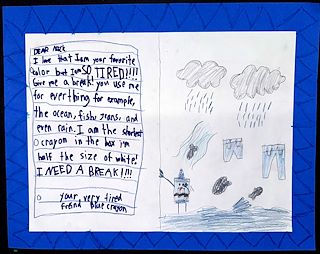 DEAR NICK
I love that I am your favorite
color but I am SO TIRED!!!!
Give me a break! you use me
for everthing for example,
the ocean, fish, jeans, and
even rain. I am the shortest
crayon in the box I'm
half the size of white!
I NEED A BREAK!!!
your very tired
freind Blue crayon